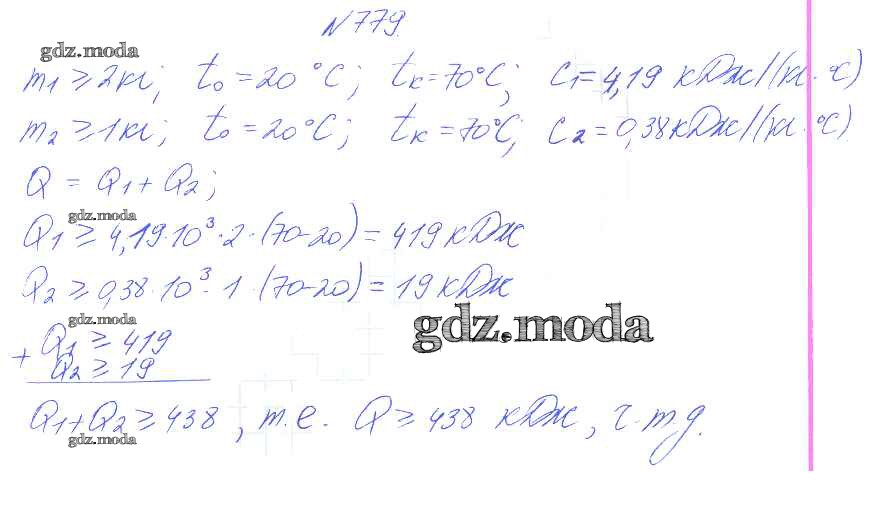 N779.
gdz.moda
m1 ≥ 2кг; t0 = 20 °C; tк = 70°C; C1 = 4,19 кДж/(кг·°C)
m2 ≥ 1кг; t0 = 20°C; tк = 70°C; C2 = 0,38кДж/(кг·°C)
Q = Q1 + Q2;
gdz.moda
Q1 ≥ 4,19·10³·2·(70-20) = 419 кДж
Q2 ≥ 0,38·10³·1·(70-20) = 19 кДж
gdz.moda
gdz.moda
+ Q1 ≥ 419
Q2 ≥ 19
Q1+Q2 ≥ 438, т.е. Q ≥ 438 кДж, ч.т.д.
gdz.moda